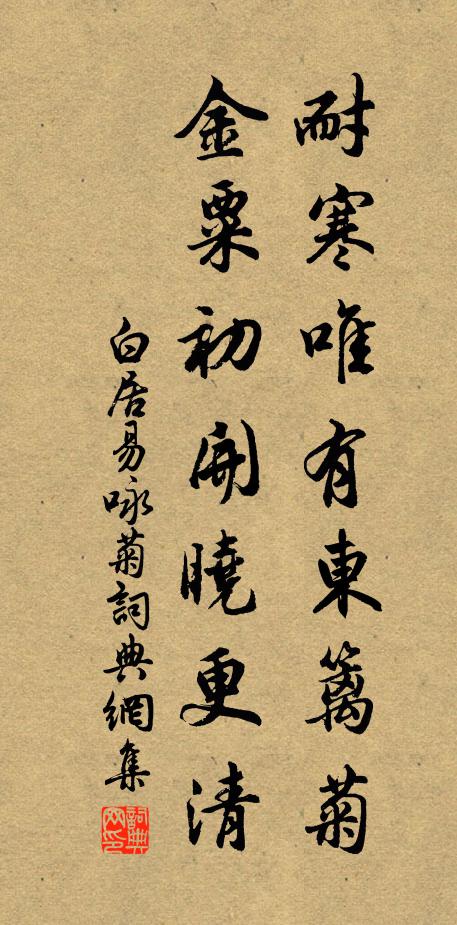 耐寒唯有東籬菊
金粟初開曉更清
白居易咏菊詞典網集
詞典
网印